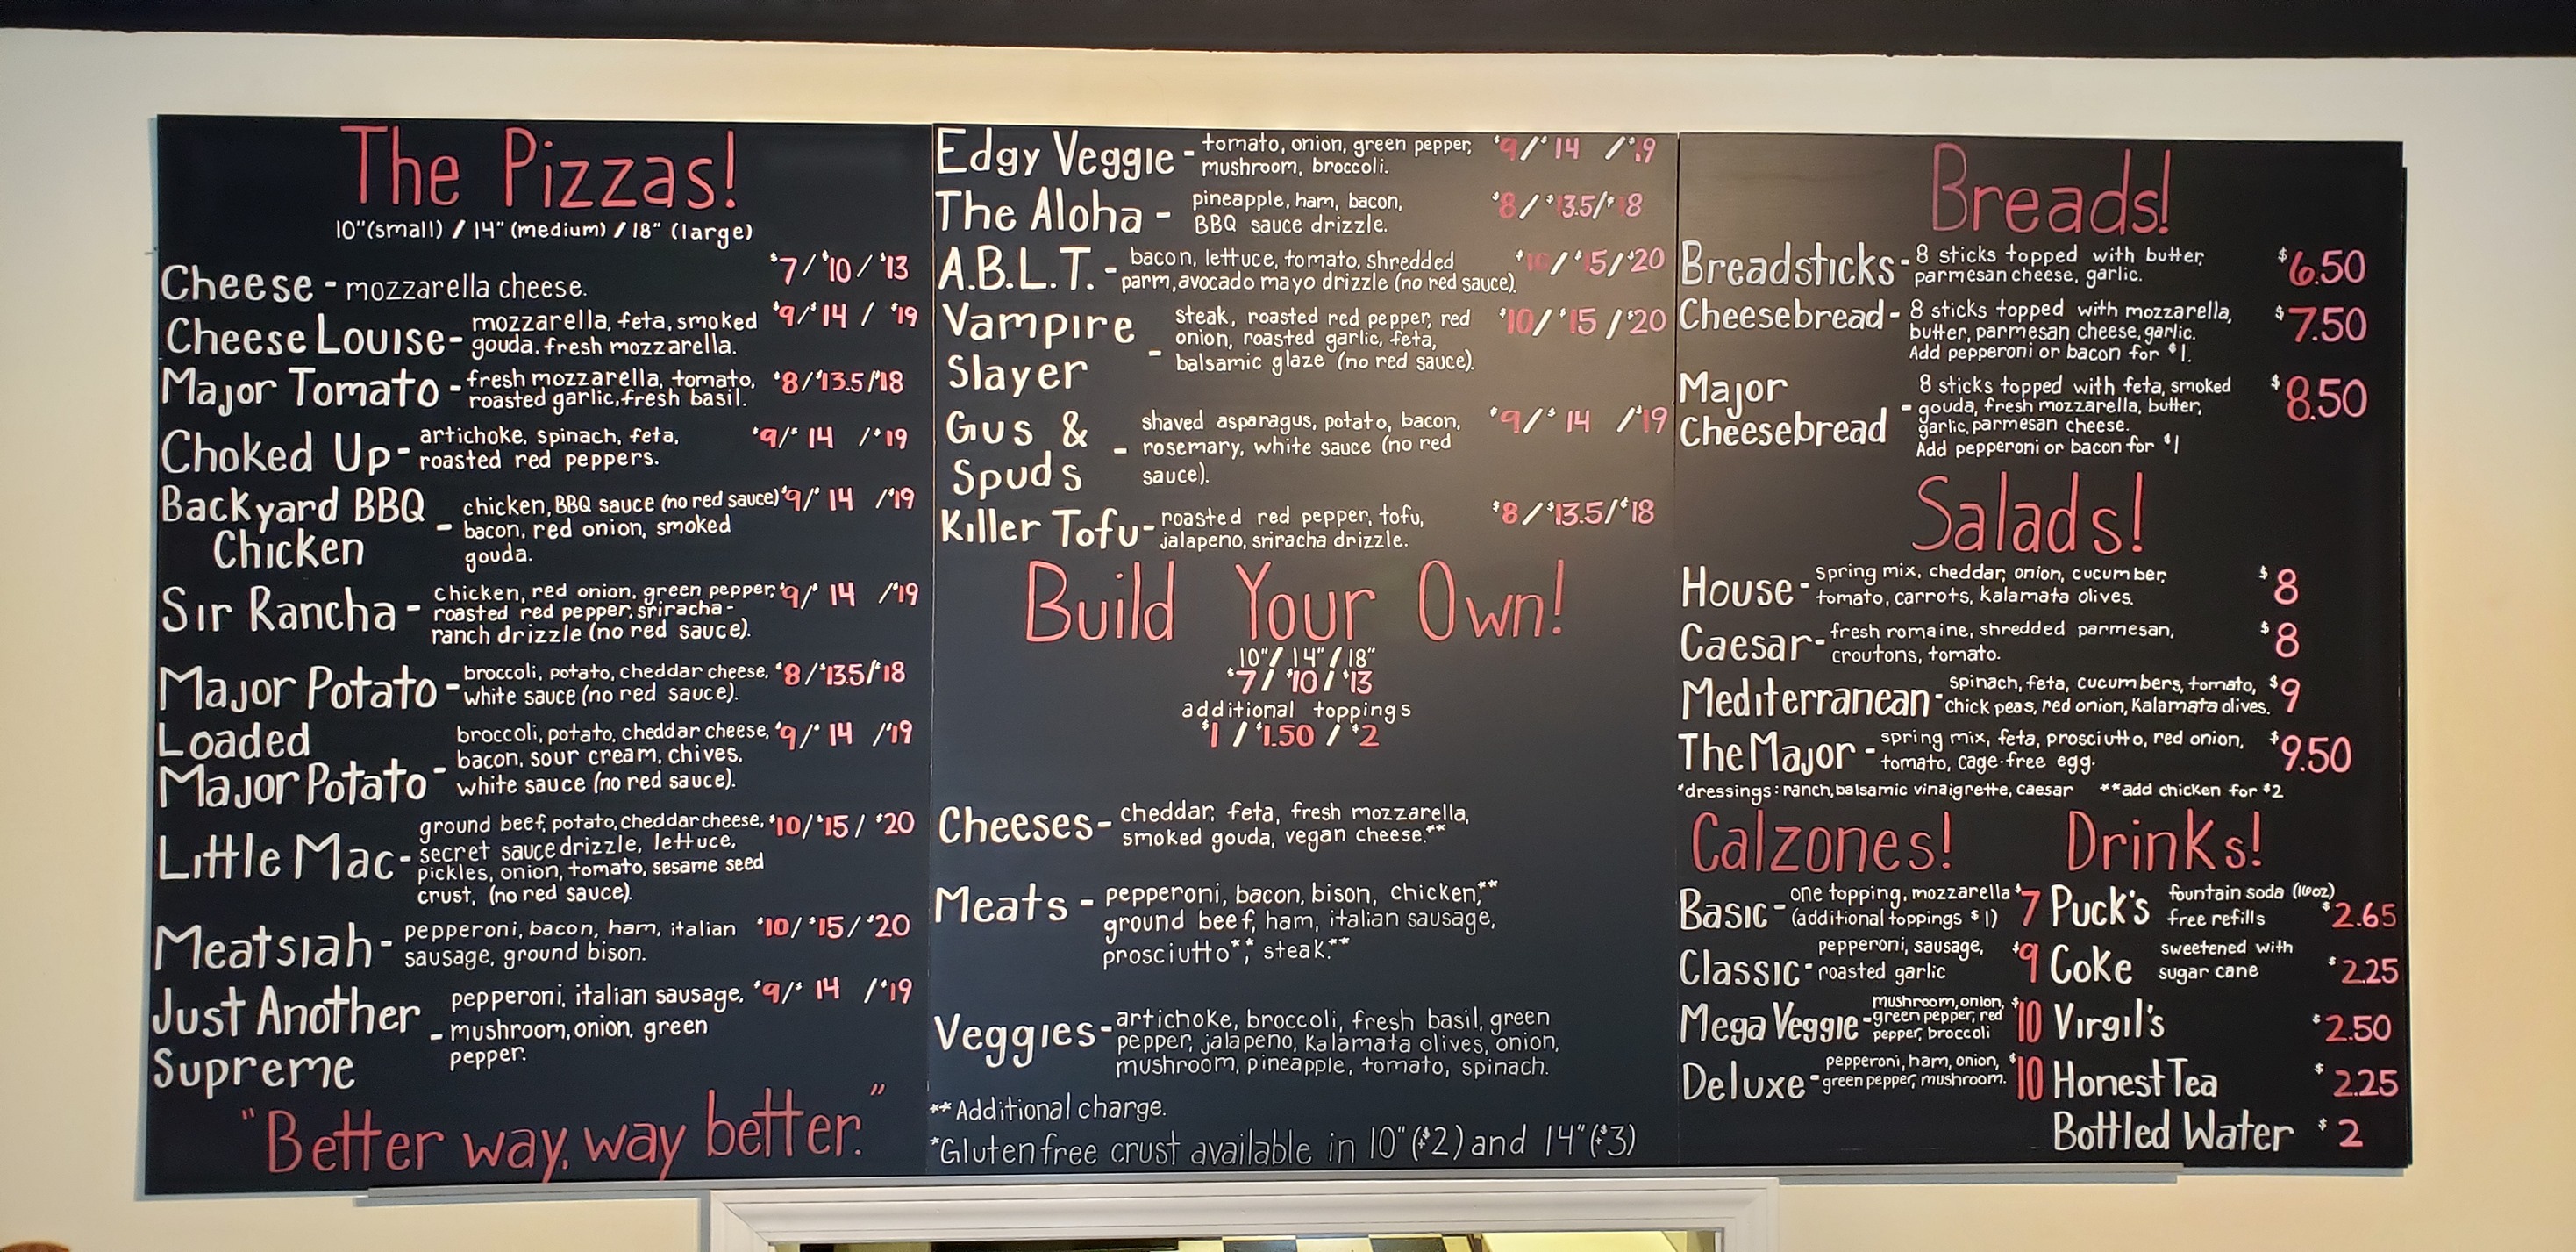 The Pizzas!
10"(small) / 14" (medium) / 18" (large)
Cheese - mozzarella cheese. $7/$10/$13
Cheese Louise - mozzarella, feta, smoked $9/$14 / $19
gouda, fresh mozzarella.
Major Tomato - fresh mozzarella, tomato, $8/$13.5/$18
roasted garlic, fresh basil.
Choked Up - artichoke, spinach, feta, $9/$14 /$19
roasted red peppers.
Backyard BBQ Chicken - chicken, BBQ sauce (no red sauce) $9/$14 /$19
bacon, red onion, smoked
gouda.
Sir Rancha - chicken, red onion, green pepper, $9/$14 /$19
roasted red pepper, sriracha-
ranch drizzle (no red sauce).
Major Potato - broccoli, potato, cheddar cheese, $8/$13.5/$18
white sauce (no red sauce).
Loaded Major Potato - broccoli, potato, cheddar cheese, $9/$14 /$19
bacon, sour cream, chives,
white sauce (no red sauce).
Little Mac - ground beef, potato, cheddar cheese, $10/$15/$20
secret sauce drizzle, lettuce,
pickles, onion, tomato, sesame seed
crust, (no red sauce).
Meatsiah - pepperoni, bacon, ham, italian $10/$15/$20
sausage, ground bison.
Just Another Supreme - pepperoni, italian sausage, $9/$14 /$19
mushroom, onion, green
pepper.
"Better way, way better."
Edgy Veggie - tomato, onion, green pepper, $9/$14 /$19
mushroom, broccoli.
The Aloha - pineapple, ham, bacon, $8/$13.5/$18
BBQ sauce drizzle.
A.B.L.T. - bacon, lettuce, tomato, shredded $10/$15/$20
parm, avocado mayo drizzle (no red sauce).
Vampire Slayer - steak, roasted red pepper, red $10/$15/$20
onion, roasted garlic, feta,
balsamic glaze (no red sauce).
Gus & Spuds - shaved asparagus, potato, bacon, $9/$14 /$19
rosemary, white sauce (no red
sauce).
Killer Tofu - roasted red pepper, tofu, $8/$13.5/$18
jalapeno, sriracha drizzle.
Build Your Own!
10"/14"/18"
$7/$10/$13
additional toppings
$1/$1.50/$2
Cheeses - cheddar, feta, fresh mozzarella,
smoked gouda, vegan cheese.**
Meats - pepperoni, bacon, bison, chicken,**
ground beef, ham, italian sausage,
prosciutto**, steak.**
Veggies - artichoke, broccoli, fresh basil, green
pepper, jalapeno, kalamata olives, onion,
mushroom, pineapple, tomato, spinach.
**Additional charge.
*Gluten free crust available in 10" ($2) and 14" ($3)
Breads!
Breadsticks - 8 sticks topped with butter, $6.50
parmesan cheese, garlic.
Cheesebread - 8 sticks topped with mozzarella, $7.50
butter, parmesan cheese, garlic.
Add pepperoni or bacon for $1.
Major Cheesebread - 8 sticks topped with feta, smoked $8.50
gouda, fresh mozzarella, butter,
garlic, parmesan cheese.
Add pepperoni or bacon for $1
Salads!
House - spring mix, cheddar, onion, cucumber, $8
tomato, carrots, kalamata olives.
Caesar - fresh romaine, shredded parmesan, $8
croutons, tomato.
Mediterranean - spinach, feta, cucumbers, tomato, $9
chick peas, red onion, kalamata olives.
The Major - spring mix, feta, prosciutto, red onion, $9.50
tomato, cage-free egg.
*dressings: ranch, balsamic vinaigrette, caesar **add chicken for $2
Calzones!
Basic - one topping, mozzarella $7
(additional toppings $1)
Classic - pepperoni, sausage, $9
roasted garlic
Mega Veggie - mushroom, onion, $10
green pepper, red
pepper, broccoli
Deluxe - pepperoni, ham, onion, $10
green pepper, mushroom.
Drinks!
Puck's fountain soda (16oz) $2.65
free refills
Coke sweetened with $2.25
sugar cane
Virgil's $2.50
Honest Tea $2.25
Bottled Water $2